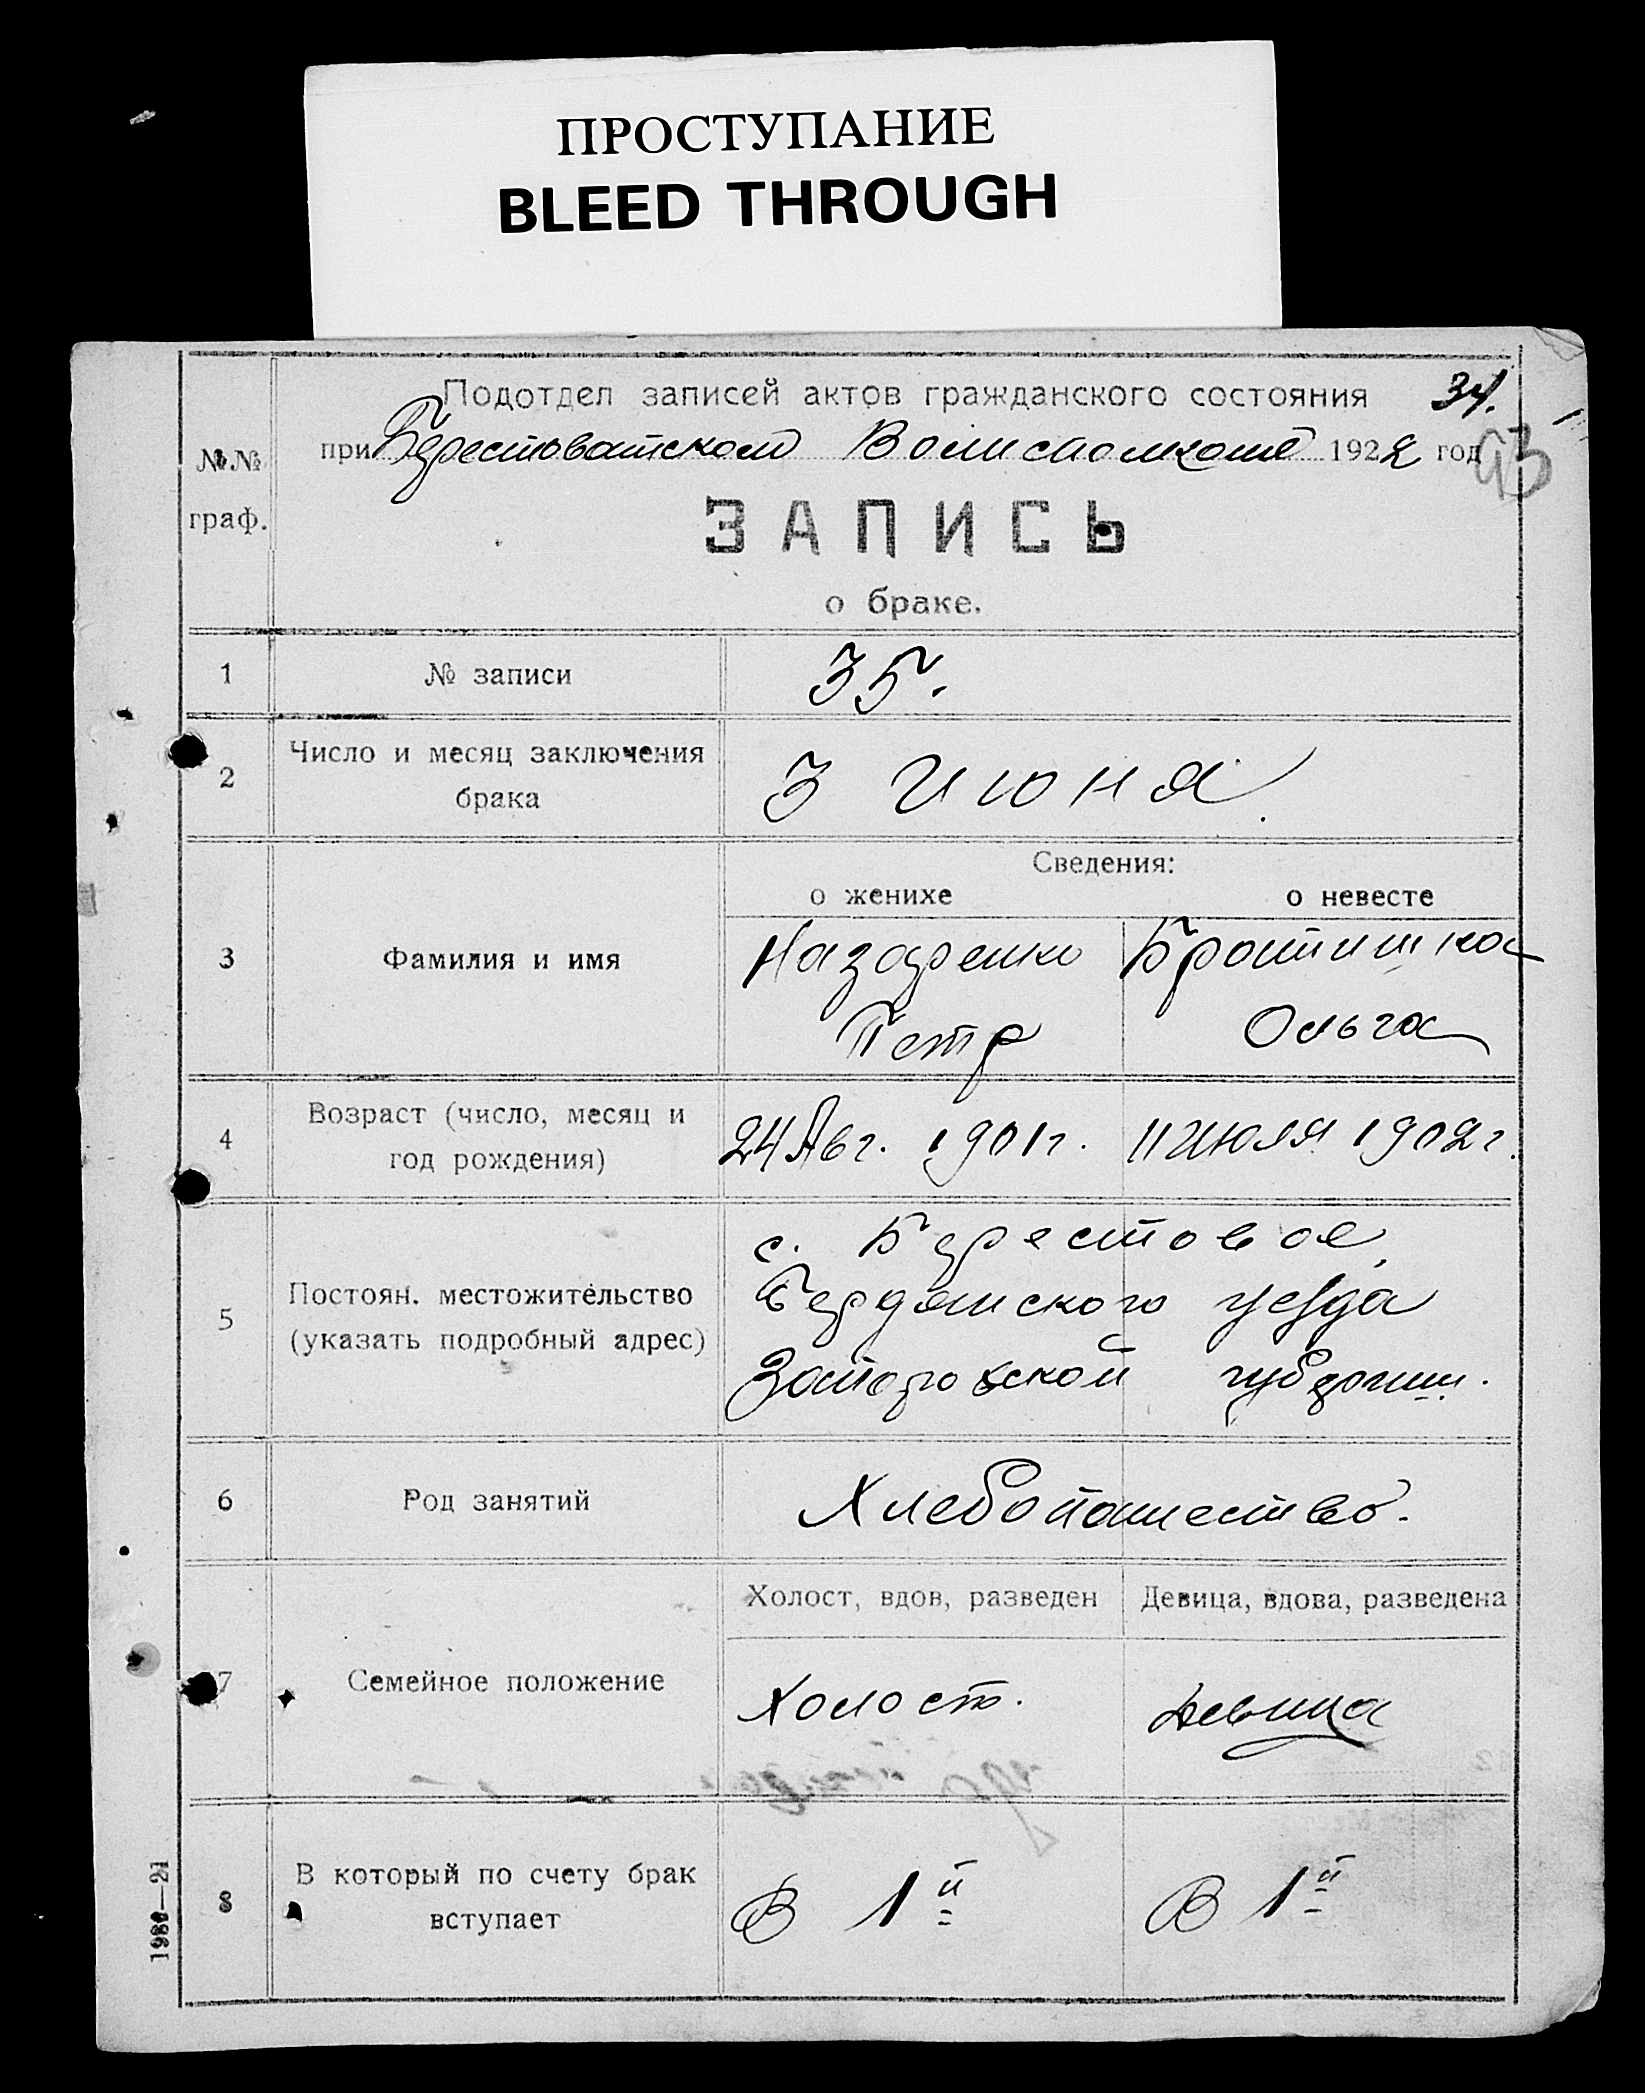 ПРОСТУПАНИЕ
BLEED THROUGH
Подотдел записей актов гражданского состояния 34.
при Берестоватском Волисполкоме 1922 год 93
№№ граф.
ЗАПИСЬ
о браке.
1 № записи 35.
2 Число и месяц заключения брака 3 Июня.
Сведения:
о женихе о невесте
3 Фамилия и имя Назаренко Братишка
Петр Ольга
4 Возраст (число, месяц и год рождения) 24 Авг. 1901 г. 11 Июля 1902 г.
5 Постоян. местожительство (указать подробный адрес) с. Берестовое,
Бердянского уезда
Запорожской губернии.
6 Род занятий Хлебопашество.
Холост, вдов, разведен Девица, вдова, разведена
7 Семейное положение Холост. девица
8 В который по счету брак вступает В 1й В 1й